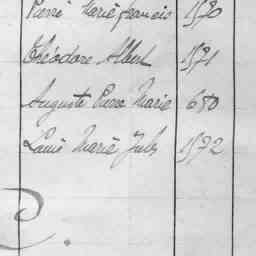 Pierre Marie francis 1570
Théodore Albert 1571
Auguste Pierre Marie 680
Louis Marie Jules 1572